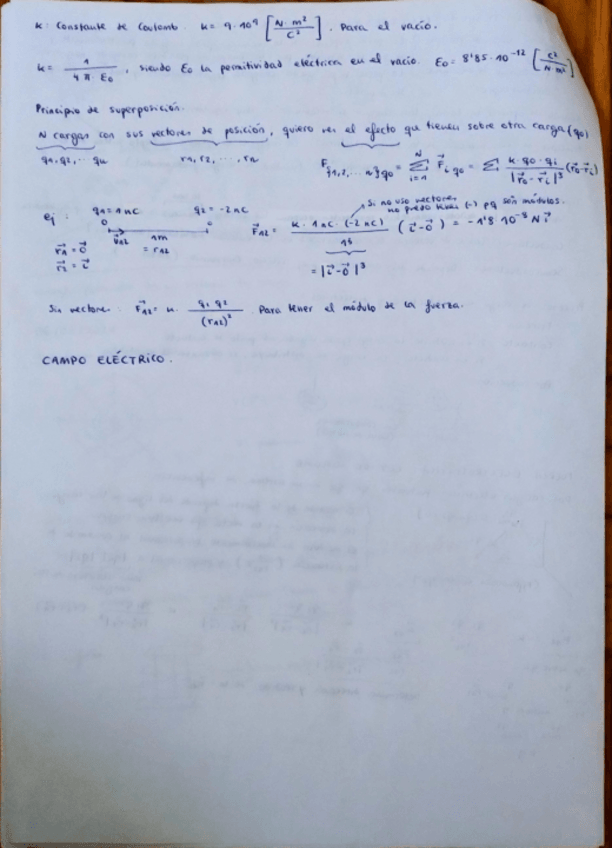 K: Constante de Coulomb. k = 9·10⁹ [N·m²/C²]. Para el vacío.
k = 1/(4π·ε₀), siendo ε₀ la permitividad eléctrica en el vacío. ε₀ = 8'85·10⁻¹² [C²/N·m²]
Principio de superposición.
N cargas con sus vectores de posición, quiero ver el efecto que tienen sobre otra carga (q₀)
q₁, q₂, ... qₙ r₁, r₂, ..., rₙ F⃗{1,2,...n}q₀ = Σᵢ₌₁ᴺ F⃗ᵢ q₀ = Σ k·q₀·qᵢ/|r⃗₀-r⃗ᵢ|³ (r⃗₀-r⃗ᵢ)
Si no uso vectores
no puedo tener (-) pq son módulos.
ej: q₁=1nC q₂=-2nC F⃗₁₂ = k·1nC·(-2nC)/1³ (i⃗-0⃗) = -1'8·10⁻⁸ N i⃗
r⃗₁=0⃗ 1m
r⃗₂=i⃗ = r₁₂
= |i⃗-0⃗|³
Sin vectores: F⃗₁₂ = k · q₁ q₂/(r₁₂)². Para tener el módulo de la fuerza.
CAMPO ELÉCTRICO.